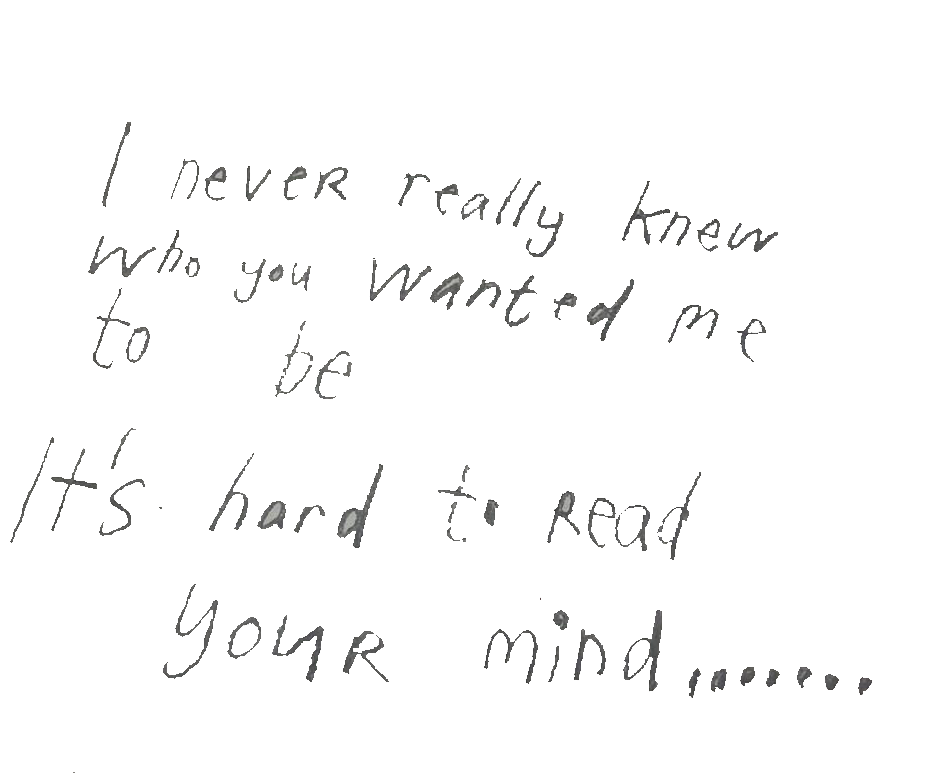 I never really knew
who you wanted me
to be
It's hard to Read
your mind........